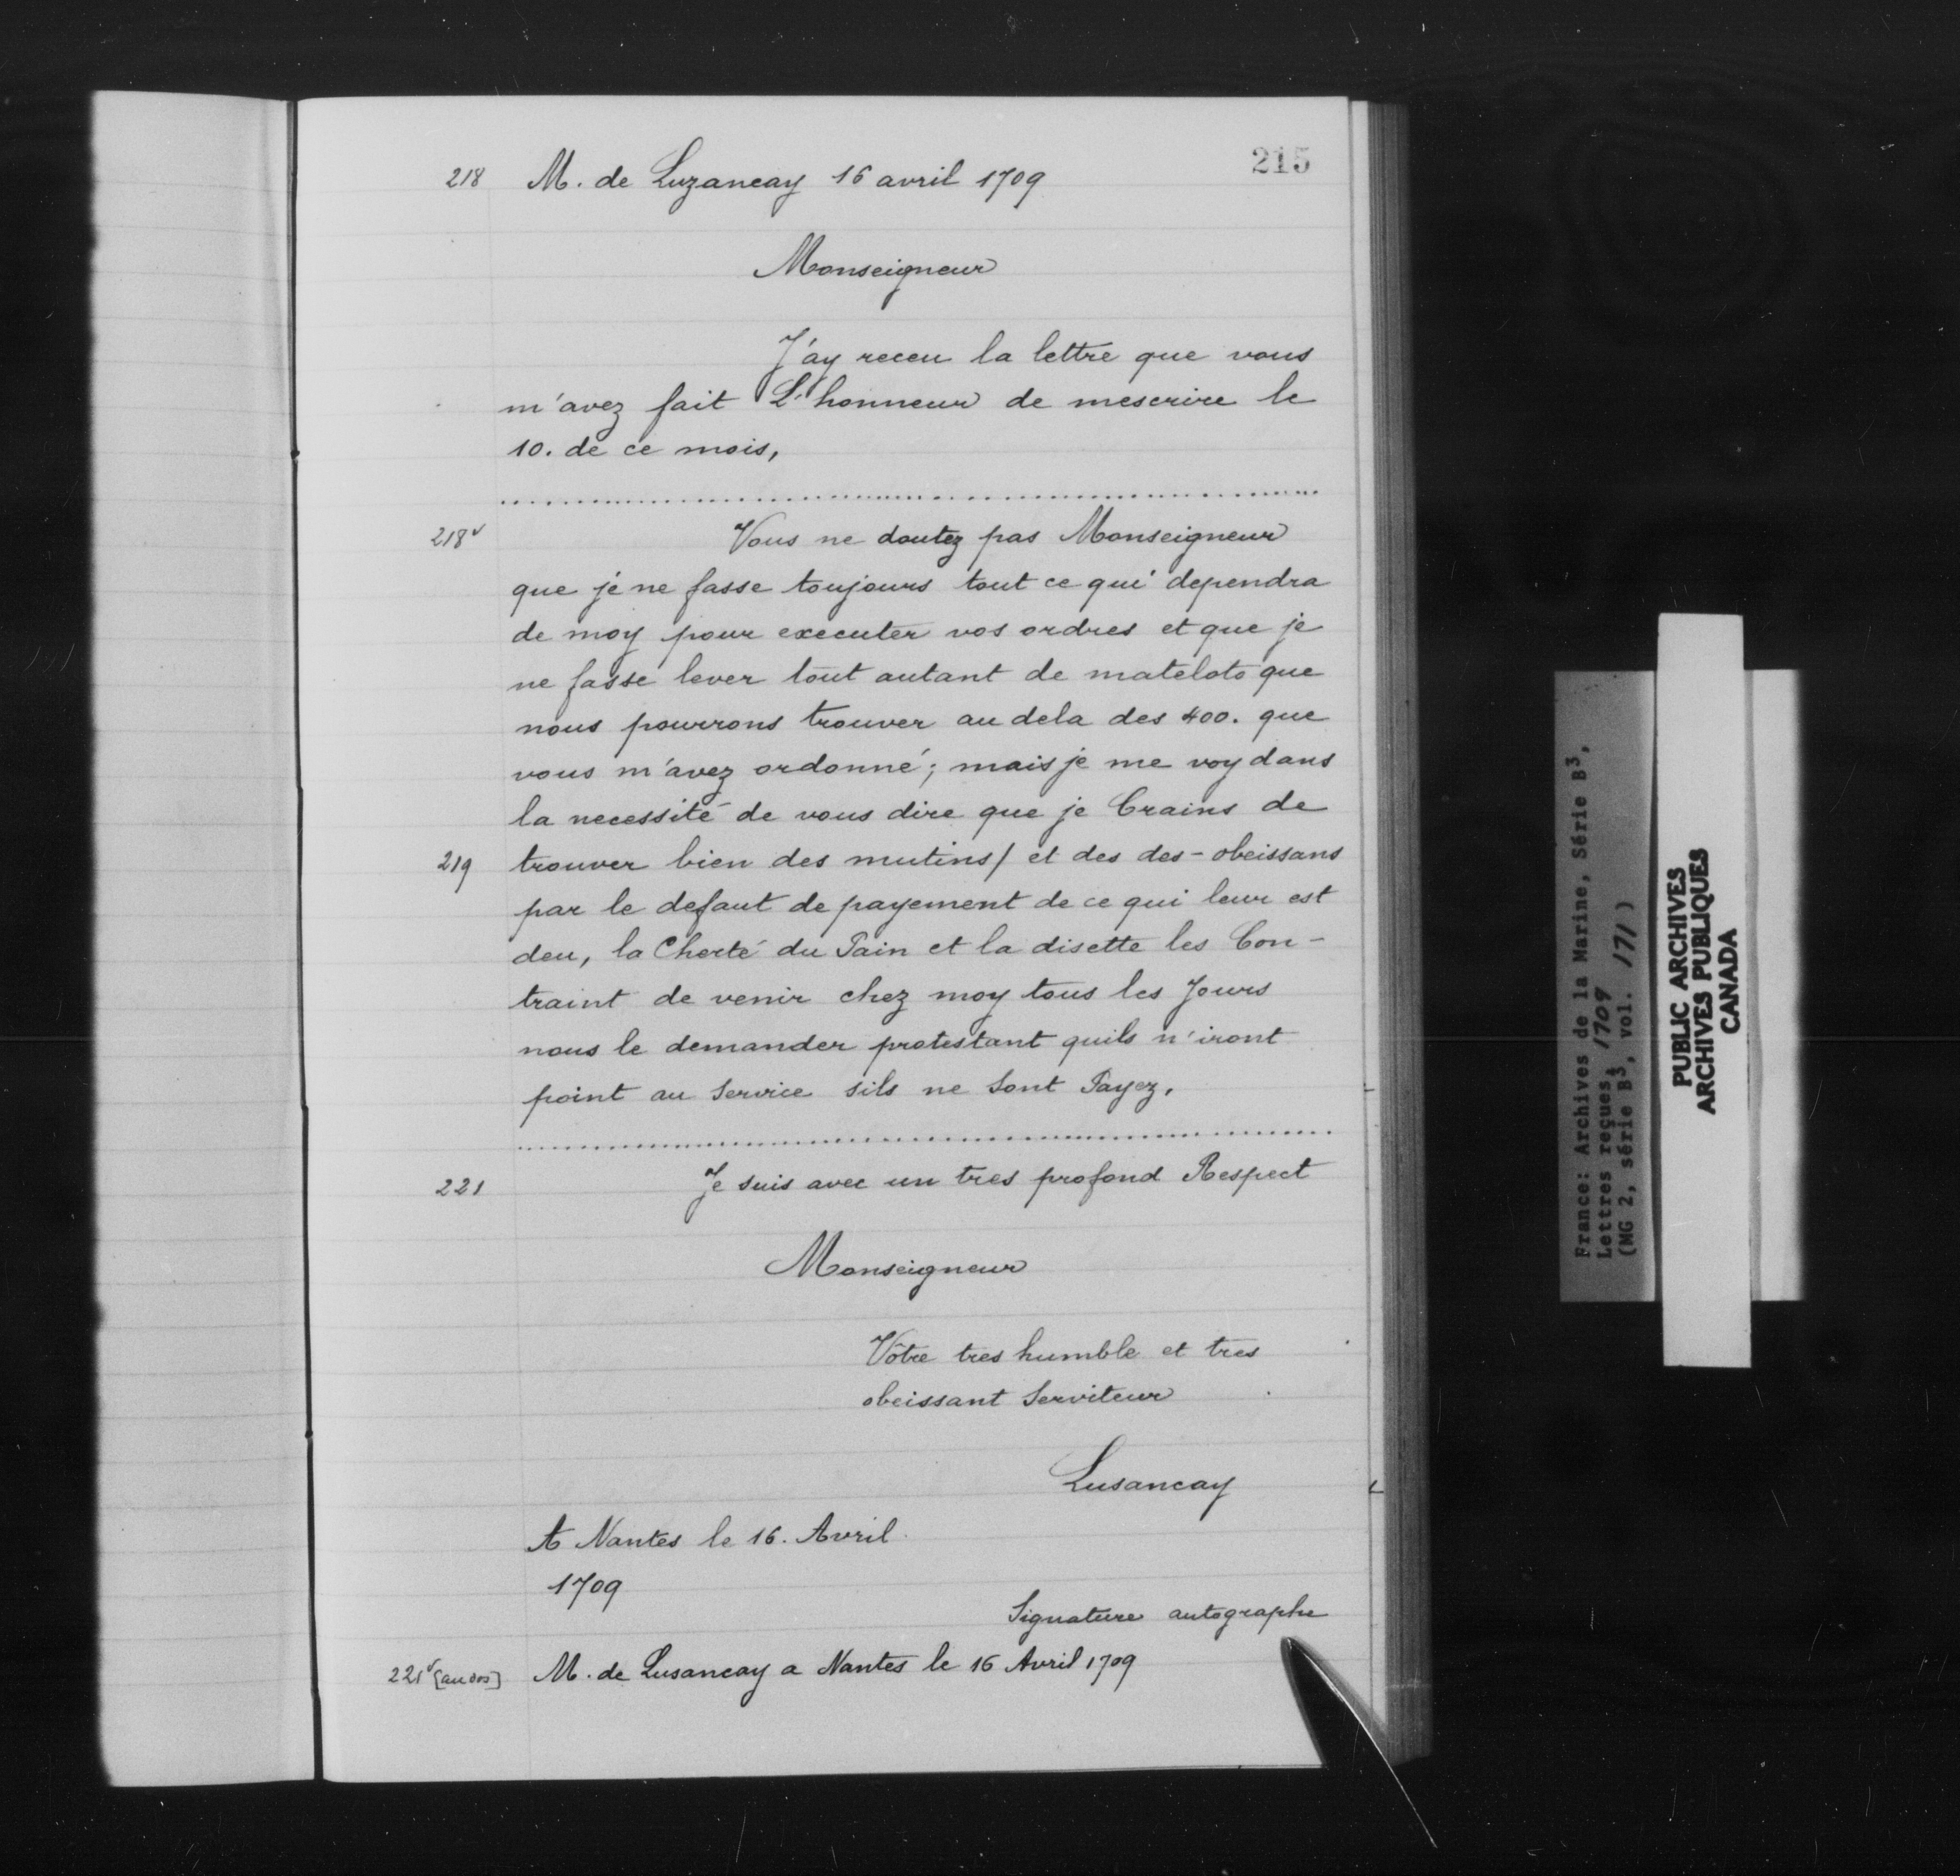 215
218 M. de Luzancay 16 avril 1709
Monseigneur
J'ay receu la lettre que vous
m'avez fait L'honneur de mescrire le
10. de ce mois,
218v Vous ne doutez pas Monseigneur
que je ne fasse toujours tout ce qui dependra
de moy pour executer vos ordres et que je
ne fasse lever tout autant de matelots que
nous pourrons trouver au dela des 400. que
vous m'avez ordonné; mais je me voy dans
la necessité de vous dire que je Crains de
219 trouver bien des mutins/ et des des-obeissans
par le defaut de payement de ce qui leur est
deu, la Cherté du Pain et la disette les Con-
traint de venir chez moy tous les Jours
nous le demander protestant quils n'iront
point au Service sils ne Sont Payez.
221 Je suis avec un tres profond Respect
Monseigneur
Vôtre tres humble et tres
obeissant Serviteur
Lusancay
A Nantes le 16. Avril
1709
Signature autographe
221v [au dos] M. de Lusancay a Nantes le 16 Avril 1709
France: Archives de la Marine, Série B3,
Lettres reçues, 1709
(MG 2, série B3, vol. 171)
PUBLIC ARCHIVES
ARCHIVES PUBLIQUES
CANADA